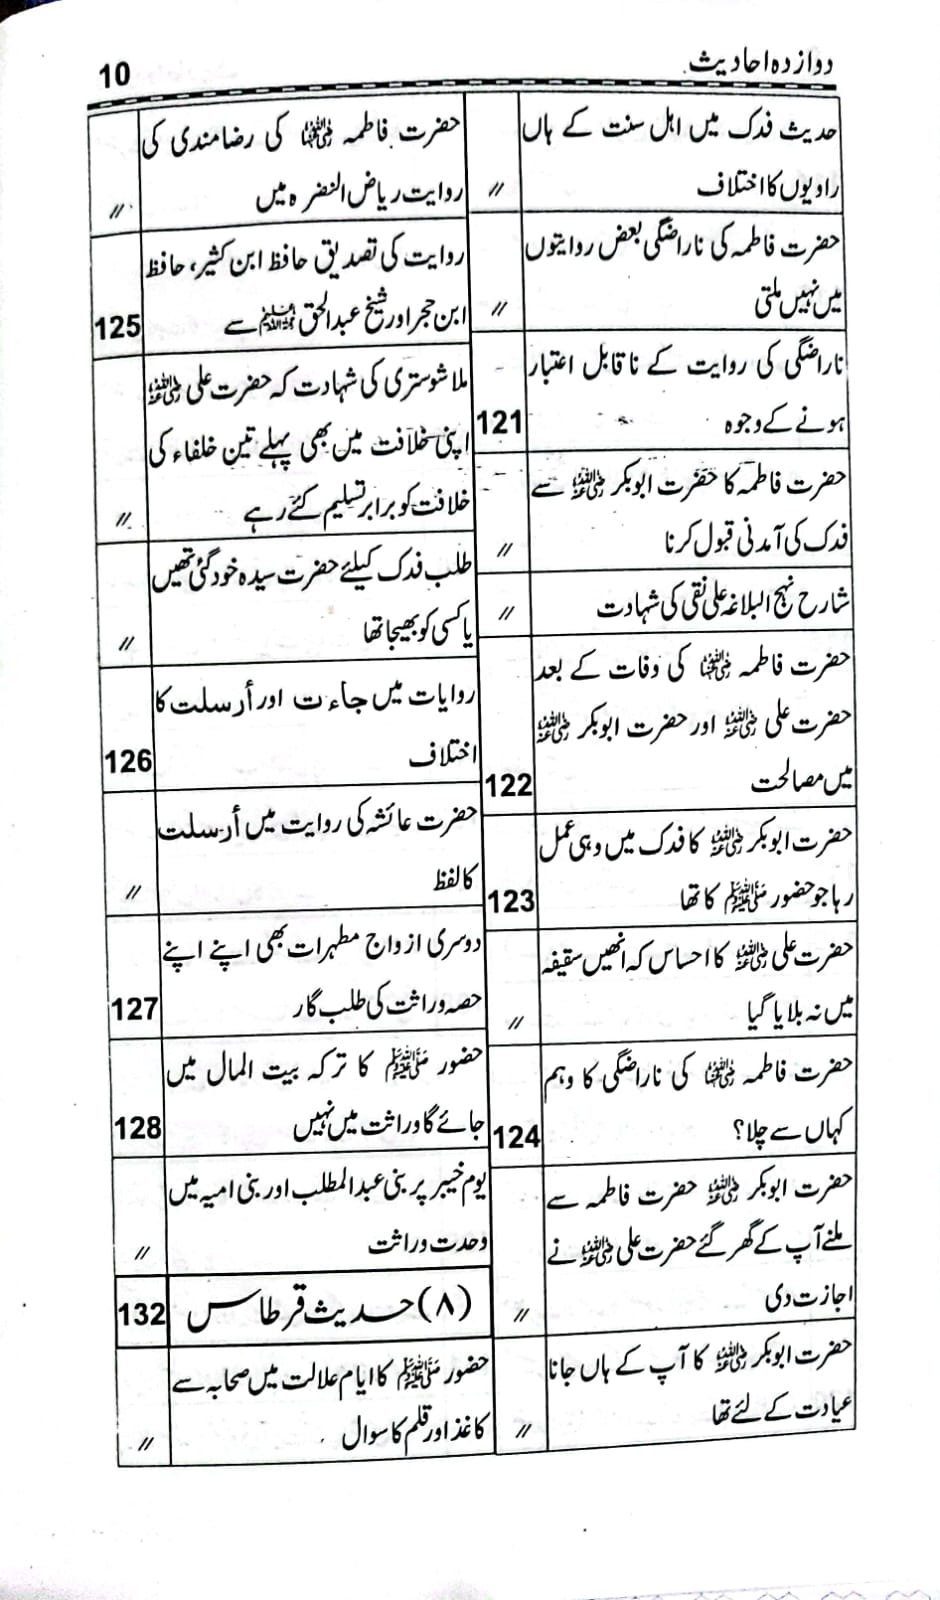 دوازدہ احادیث
10
حدیث فدک میں اهل سنت کے ہاں
راویوں کا اختلاف
〃
حضرت فاطمہ کی ناراضگی بعض روایتوں
میں نہیں ملتی
〃
ناراضگی کی روایت کے ناقابل اعتبار
ہونے کے وجوہ
121
حضرت فاطمہ کا حضرت ابوبکر رضی اللہ عنہ سے
فدک کی آمدنی قبول کرنا
〃
شارح نہج البلاغہ علی نقی کی شہادت
〃
حضرت فاطمہ رضی اللہ عنہا کی وفات کے بعد
حضرت علی رضی اللہ عنہ اور حضرت ابوبکر رضی اللہ عنہ
میں مصالحت
122
حضرت ابوبکر رضی اللہ عنہ کا فدک میں وہی عمل
رہا جو حضور ﷺ کا تھا
123
حضرت علی رضی اللہ عنہ کا احساس کہ انھیں سقیفہ
میں نہ بلایا گیا
〃
حضرت فاطمہ رضی اللہ عنہا کی ناراضگی کا وہم
کہاں سے چلا؟
124
حضرت ابوبکر رضی اللہ عنہ حضرت فاطمہ سے
ملنے آپ کے گھر گئے حضرت علی رضی اللہ عنہ نے
اجازت دی
〃
حضرت ابوبکر رضی اللہ عنہ کا آپ کے ہاں جانا
عیادت کے لئے تھا
〃
حضرت فاطمہ رضی اللہ عنہا کی رضامندی کی
روایت ریاض النضرہ میں
〃
روایت کی تصدیق حافظ ابن کثیر، حافظ
ابن حجر اور شیخ عبدالحق رحمہ اللہ سے
125
ملا شوستری کی شہادت کہ حضرت علی رضی اللہ عنہ
اپنی خلافت میں بھی پہلے تین خلفاء کی
خلافت کو برابر تسلیم کئے رہے
〃
طلب فدک کیلئے حضرت سیدہ خود گئی تھیں
یا کسی کو بھیجا تھا
〃
روایات میں جاءت اور أرسلت کا
اختلاف
126
حضرت عائشہ کی روایت میں أرسلت
کا لفظ
〃
دوسری ازواج مطہرات بھی اپنے اپنے
حصہ وراثت کی طلب گار
127
حضور ﷺ کا ترکہ بیت المال میں
جائے گا وراثت میں نہیں
128
یوم خیبر پر بنی عبدالمطلب اور بنی امیہ میں
وحدت وراثت
〃
(۸) حدیث قرطاس
132
حضور ﷺ کا ایام علالت میں صحابہ سے
کاغذ اور قلم کا سوال
〃